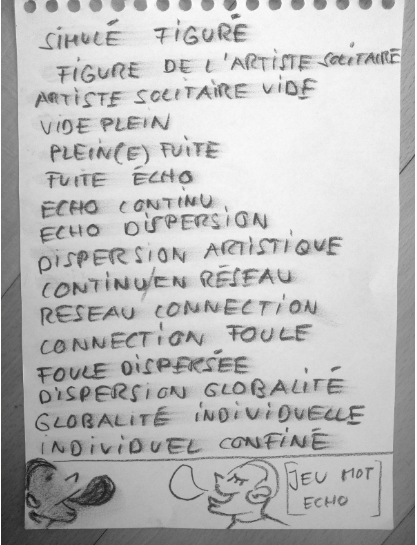 SIMULÉ FIGURÉ
FIGURE DE L'ARTISTE SOLITAIRE
ARTISTE SOLITAIRE VIDE
VIDE PLEIN
PLEIN(E) FUITE
FUITE ÉCHO
ECHO CONTINU
ECHO DISPERSION
DISPERSION ARTISTIQUE
CONTINU/EN RÉSEAU
RESEAU CONNECTION
CONNECTION FOULE
FOULE DISPERSÉE
DISPERSION GLOBALITÉ
GLOBALITÉ INDIVIDUELLE
INDIVIDUEL CONFINÉ
[JEU MOT
ECHO]